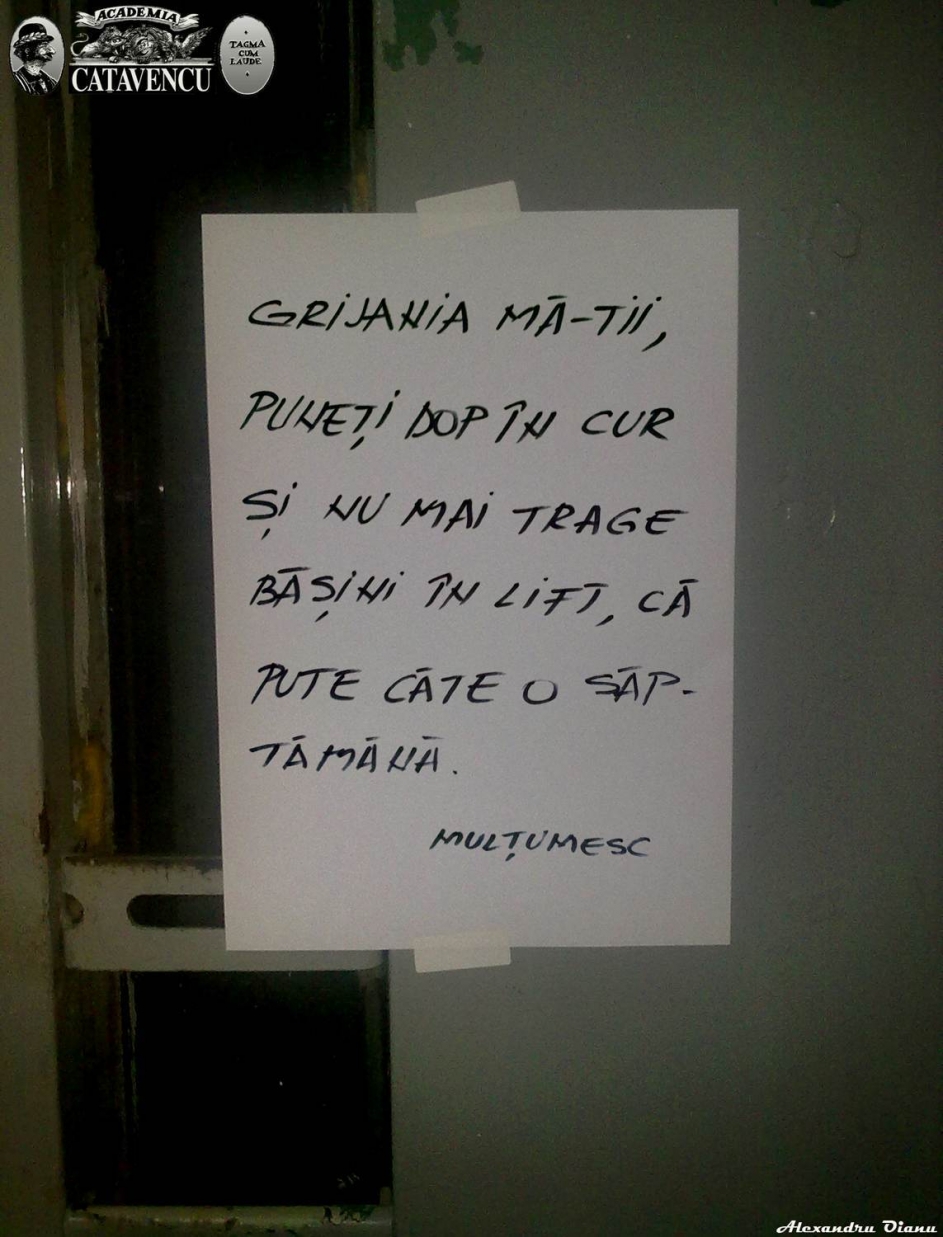 ACADEMIA
CATAVENCU
TAGMA
CUM
LAUDE
GRIJANIA MĂ-TII,
PUNEȚI DOP ÎN CUR
ȘI NU MAI TRAGE
BĂȘINI ÎN LIFT, CĂ
PUTE CĂTE O SĂP-
TĂMĂNĂ.
MULȚUMESC
Alexandru Oianu